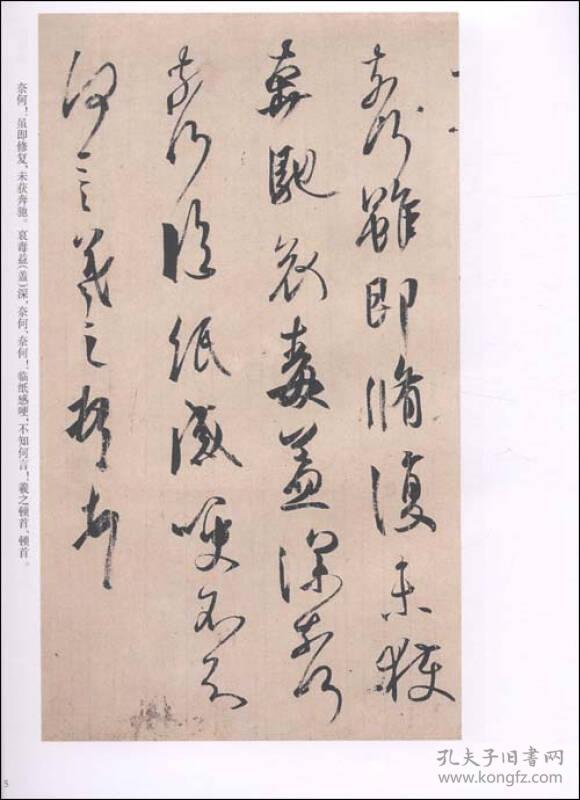 奈何雖即脩復未獲
奔馳哀毒益深奈何
奈何臨紙感哽不知
何言羲之頓首頓首
奈何！虽即修复，未获奔驰。哀毒益（盖）深，奈何、奈何！临纸感哽，不知何言！羲之顿首、顿首。
5
孔夫子旧书网
www.kongfz.com